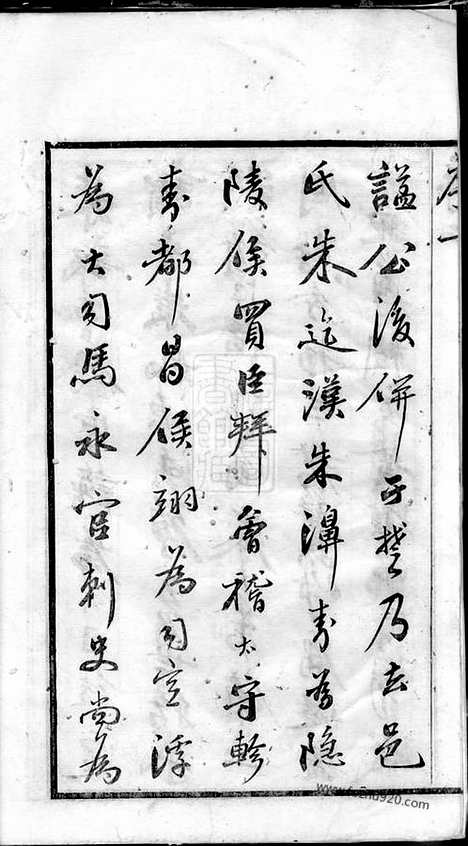 序一
謚公後併于楚乃去邑
氏朱迄漢朱濞封為隱
陵侯買臣拜會稽太守軫
封都昌侯翊為司空浮
為大司馬永官刺史尚為